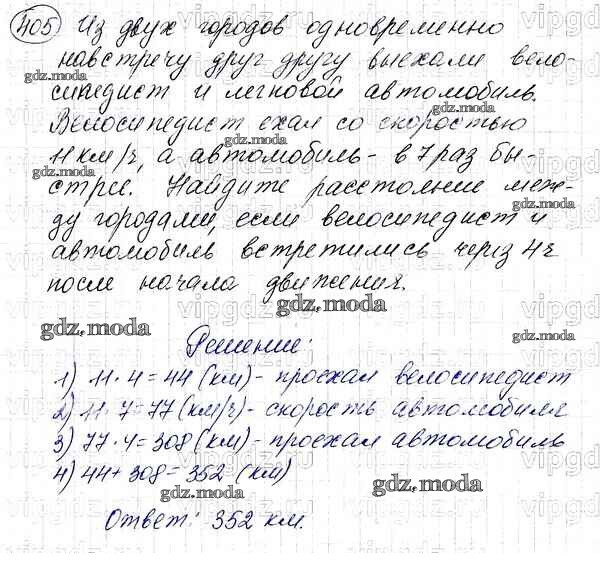 405 Из двух городов одновременно
навстречу друг другу выехали вело-
сипедист и легковой автомобиль.
Велосипедист ехал со скоростью
11 км/ч, а автомобиль - в 7 раз бы-
стрее. Найдите расстояние меж-
ду городами, если велосипедист и
автомобиль встретились через 4 ч
после начала движения.
Решение:
1) 11 · 4 = 44 (км) - проехал велосипедист
2) 11 · 7 = 77 (км/ч) - скорость автомобиля
3) 77 · 4 = 308 (км) - проехал автомобиль
4) 44 + 308 = 352 (км)
Ответ: 352 км.
gdz.moda
gdz.moda
gdz.moda
gdz.moda
gdz.moda
gdz.moda
gdz.moda
gdz.moda
gdz.moda
gdz.moda
gdz.moda